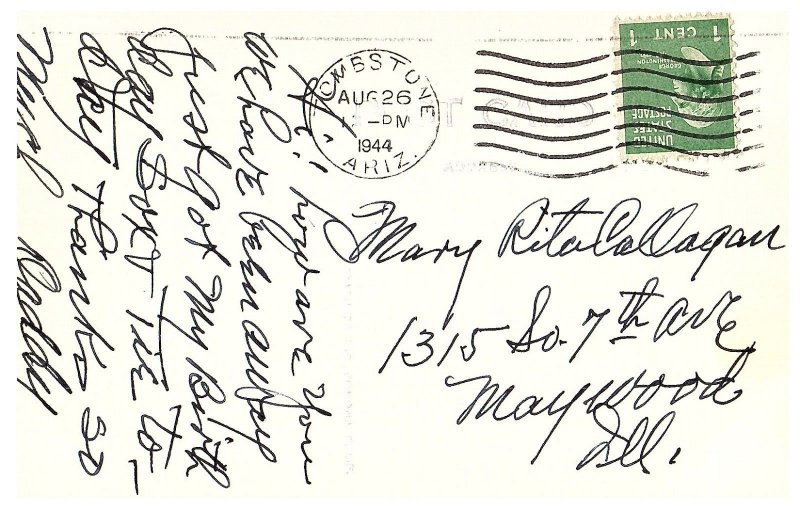 Hi! how are you
we have been away
Just got My Birth
day Tie to-
day Thanks so
Much
TOMBSTONE
AUG 26
-PM
1944
ARIZ.
UNITED
STATES
POSTAGE
GEORGE
WASHINGTON
1 CENT 1
POST CARD
Mary Rita Callagan
1315 So. 7th ave
Maywood
Ill.